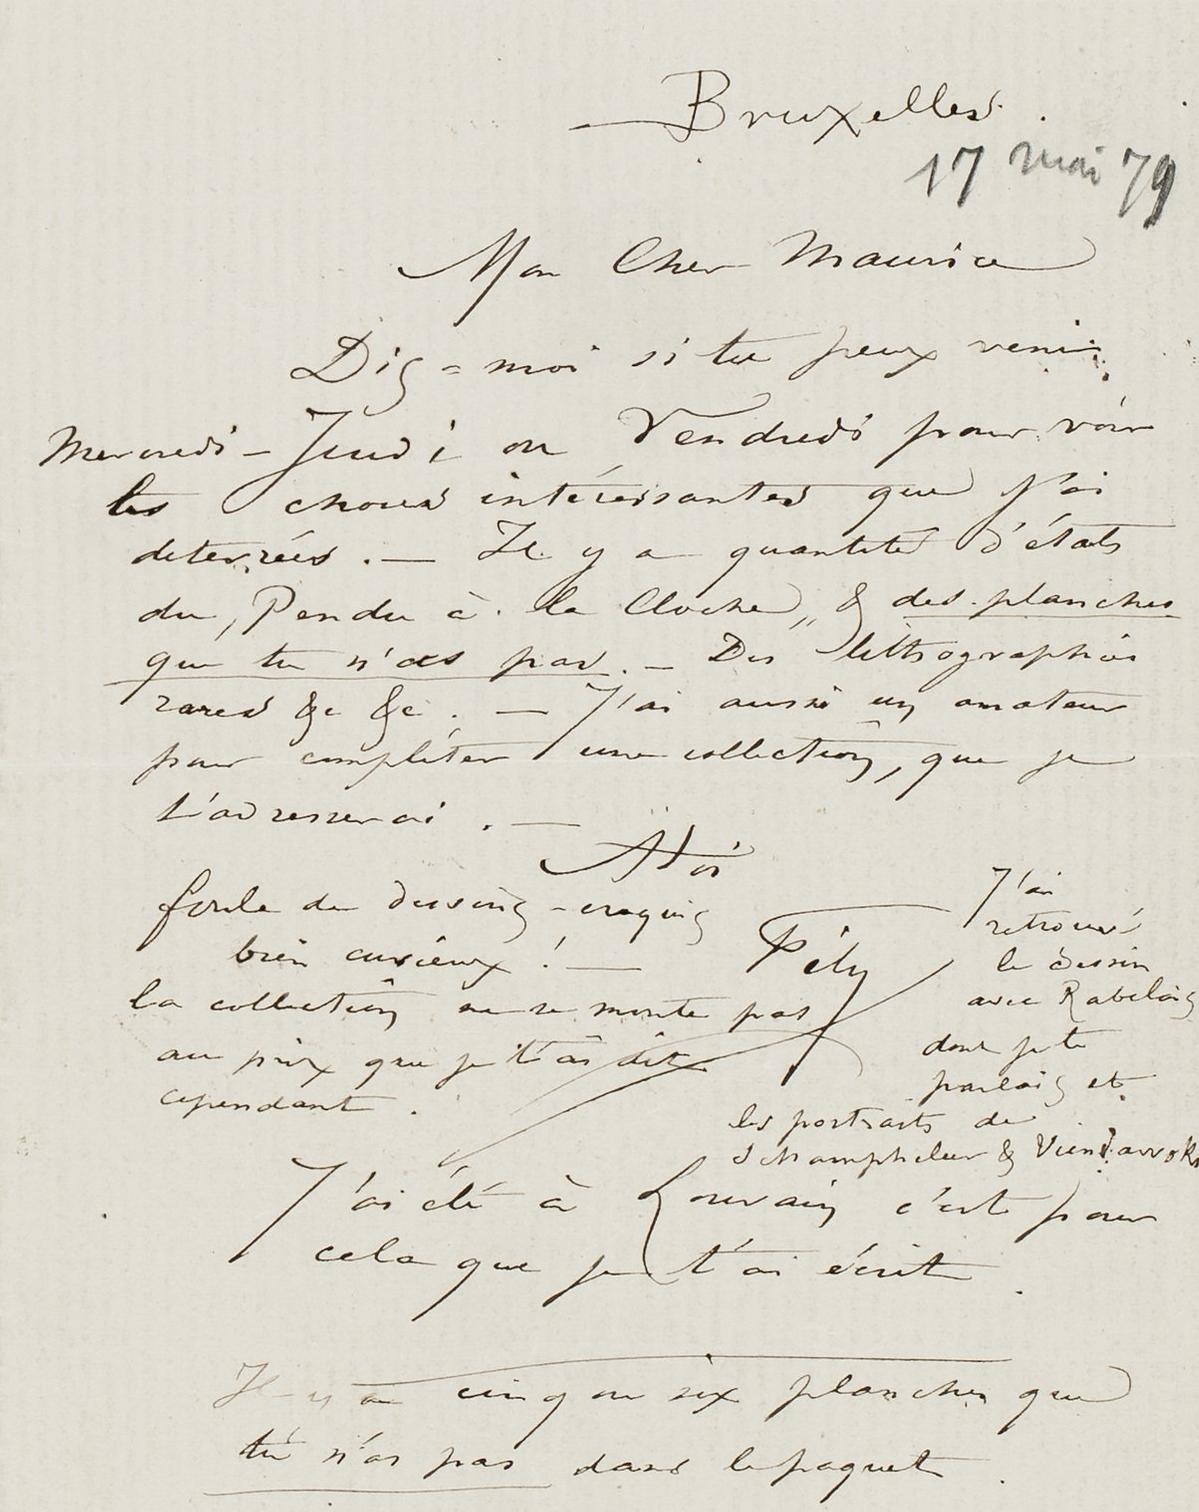 Bruxelles.
17 mai 79
Mon Cher Maurice
Dis-moi si tu peux venir
Mercredi – Jeudi ou Vendredi pour voir
les choses intéressantes que j'ai
deterrées. — Il y a quantité d'états
du „Pendu à la Cloche„ & des planches
que tu n'as pas. – Des lithographies
rares &c &c. — J'ai aussi un amateur
pour complèter une collection, que je
t'adresserai. —
A toi
foule de dessins – croquis
bien curieux ! —
la collection ne se monte pas
au prix que je t'ai dit
cependant.
Fély
J'ai
retrouvé
le dessin
avec Rabelais
dont je te
parlais et
les portraits de
Schampheleer &
J'ai été à Louvain c'est pour
cela que je t'ai écrit.
Il y a cinq ou six planches que
tu n'as pas dans le paquet.